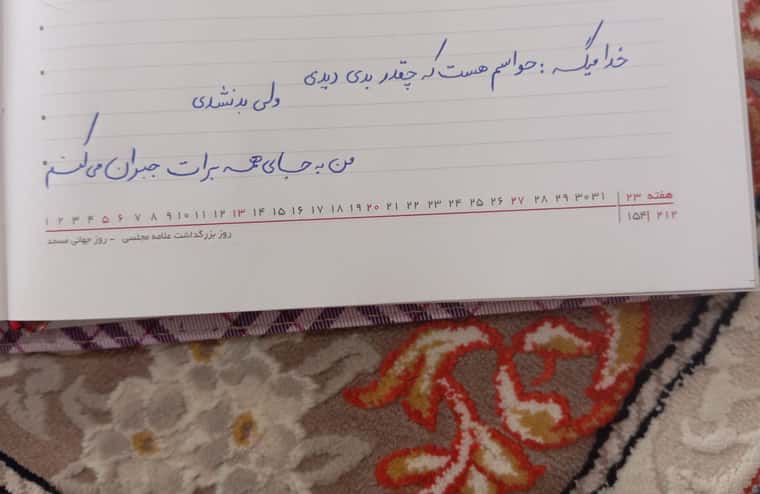 خدا میگه : حواسم هست که چقدر بدی دیدی
ولی بد نشدی
من به جای همه برات جبران می‌کنم
۱ ۲ ۳ ۴ ۵ ۶ ۷ ۸ ۹ ۱۰ ۱۱ ۱۲ ۱۳ ۱۴ ۱۵ ۱۶ ۱۷ ۱۸ ۱۹ ۲۰ ۲۱ ۲۲ ۲۳ ۲۴ ۲۵ ۲۶ ۲۷ ۲۸ ۲۹ ۳۰ ۳۱
هفته ۲۳
۱۵۴| ۲۱۲
روز بزرگداشت علامه مجلسی - روز جهانی مسجد